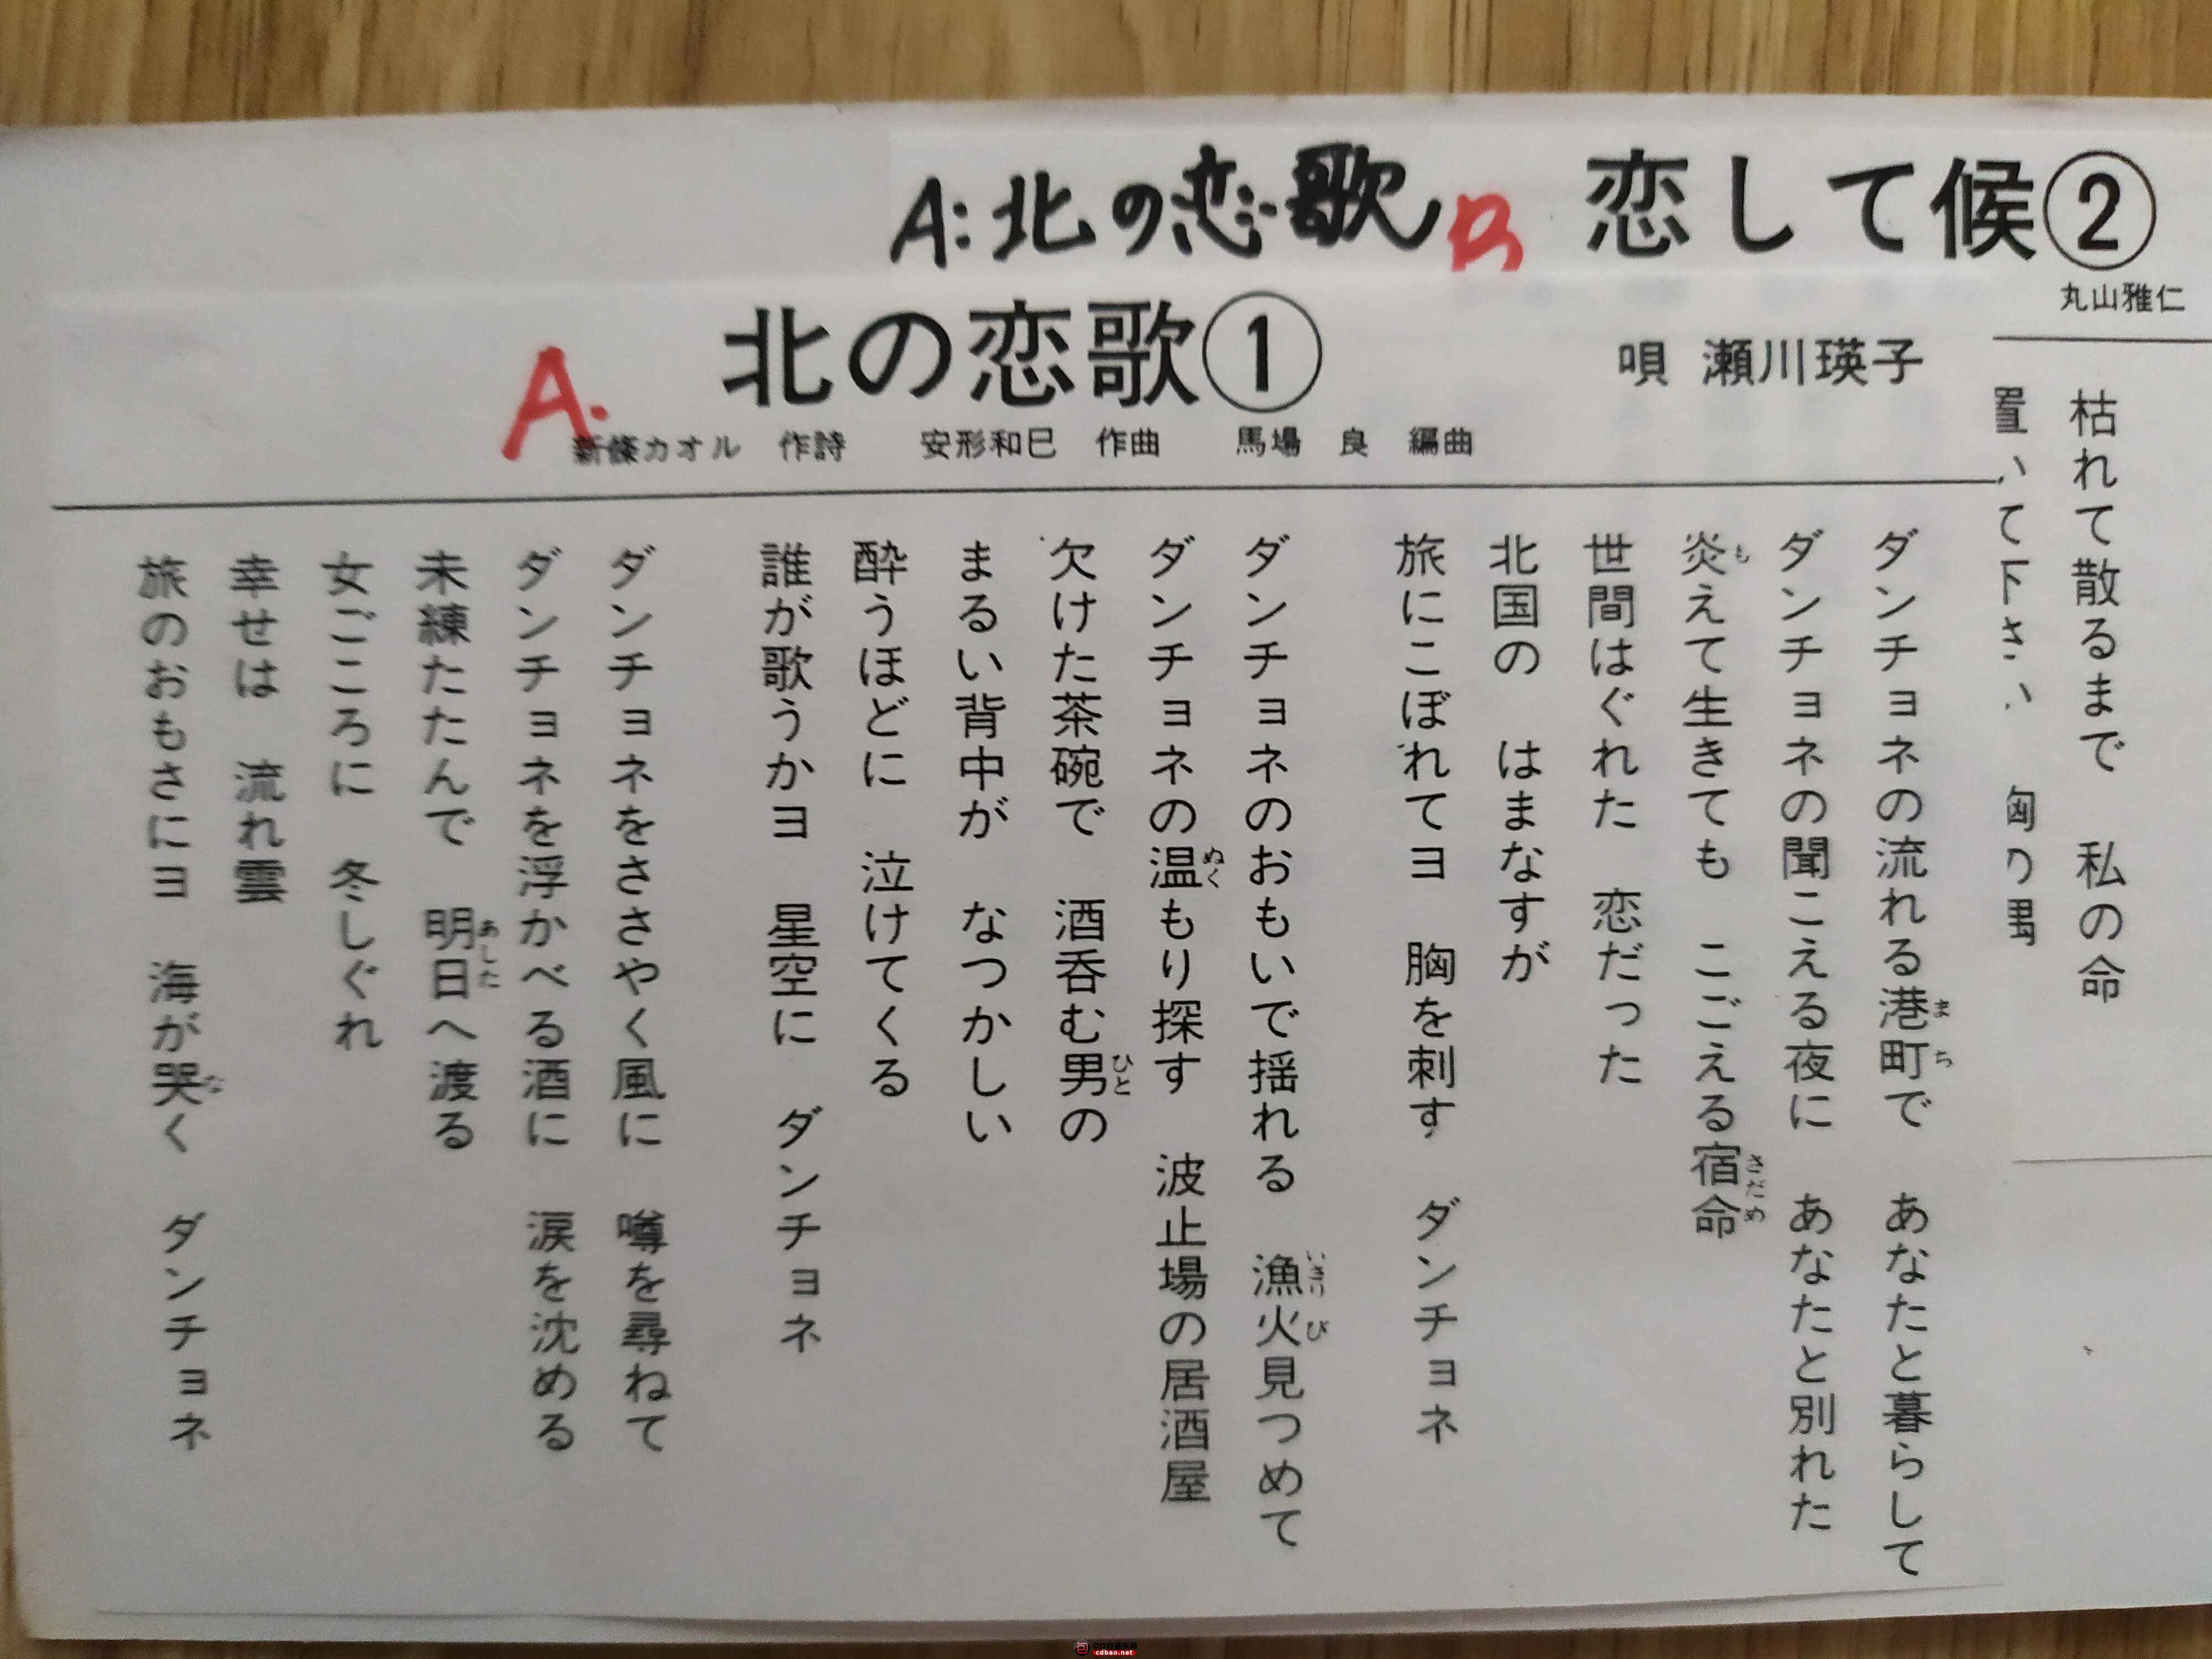 A:北の恋歌 B 恋して候②
丸山雅仁
枯れて散るまで 私の命
置いて下さい 胸の隅
A. 北の恋歌①
唄 瀬川瑛子
新條カオル 作詩 安形和巳 作曲 馬場 良 編曲
ダンチョネの流れる港町で あなたと暮らして
まち
ダンチョネの聞こえる夜に あなたと別れた
炎えて生きても こごえる宿命
も さだめ
世間はぐれた 恋だった
北国の はまなすが
旅にこぼれてヨ 胸を刺す ダンチョネ
ダンチョネのおもいで揺れる 漁火見つめて
いさりび
ダンチョネの温もり探す 波止場の居酒屋
ぬく
欠けた茶碗で 酒呑む男の
ひと
まるい背中が なつかしい
酔うほどに 泣けてくる
誰が歌うかヨ 星空に ダンチョネ
ダンチョネをささやく風に 噂を尋ねて
ダンチョネを浮かべる酒に 涙を沈める
未練たたんで 明日へ渡る
あした
女ごころに 冬しぐれ
幸せは 流れ雲
旅のおもさにヨ 海が哭く ダンチョネ
な
cdbao.net